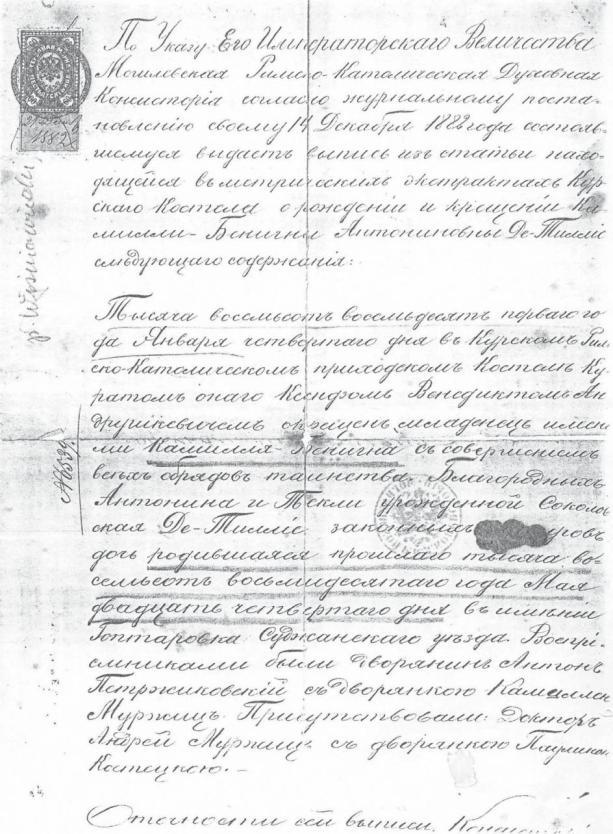 По Указу Его Императорскаго Величества
Могилевская Римско-Католическая Духовная
Консисторія согласно журнальному поста-
новленію своему 14 Декабря 1882 года состояв-
шемуся выдаетъ выпись изъ статьи нахо-
дящейся въ метрическихъ экстрактахъ Кур-
скаго Костела о рожденіи и крещеніи Ка-
милли-Бенигни Антониновны Де-Тиллі
слѣдующаго содержанія:
Тысяча восемьсотъ восемьдесятъ перваго го
да Января четвертаго дня въ Курскомъ Рим
ско-Католическомъ приходскомъ Костелѣ Ку
ратомъ онаго Ксендзомъ Бенедиктомъ Ан
друшкевичемъ окрещенъ младенецъ имена
ми Камилля-Бенигна съ совершеніемъ
всѣхъ обрядовъ таинства Благородныхъ
Антонина и Текли урожденной Соколов
ская Де-Тиллі законныхъ ровъ
дочь родившаяся прошлаго тысяча во-
семьсотъ восьмидесятаго года Мая
двадцать четвертаго дня въ имѣніи
Гоптаровка Суджанскаго уѣзда. Воспрі-
емниками были дворянинъ Антонъ
Петржиковскій съ дворянкою Камиллею
Муржицъ. Присутствовали: Докторъ
Андрей Муржицъ съ дворянкою Паулиною
Костецкою. —
О точности сей выписи,
№ 6539.
1882